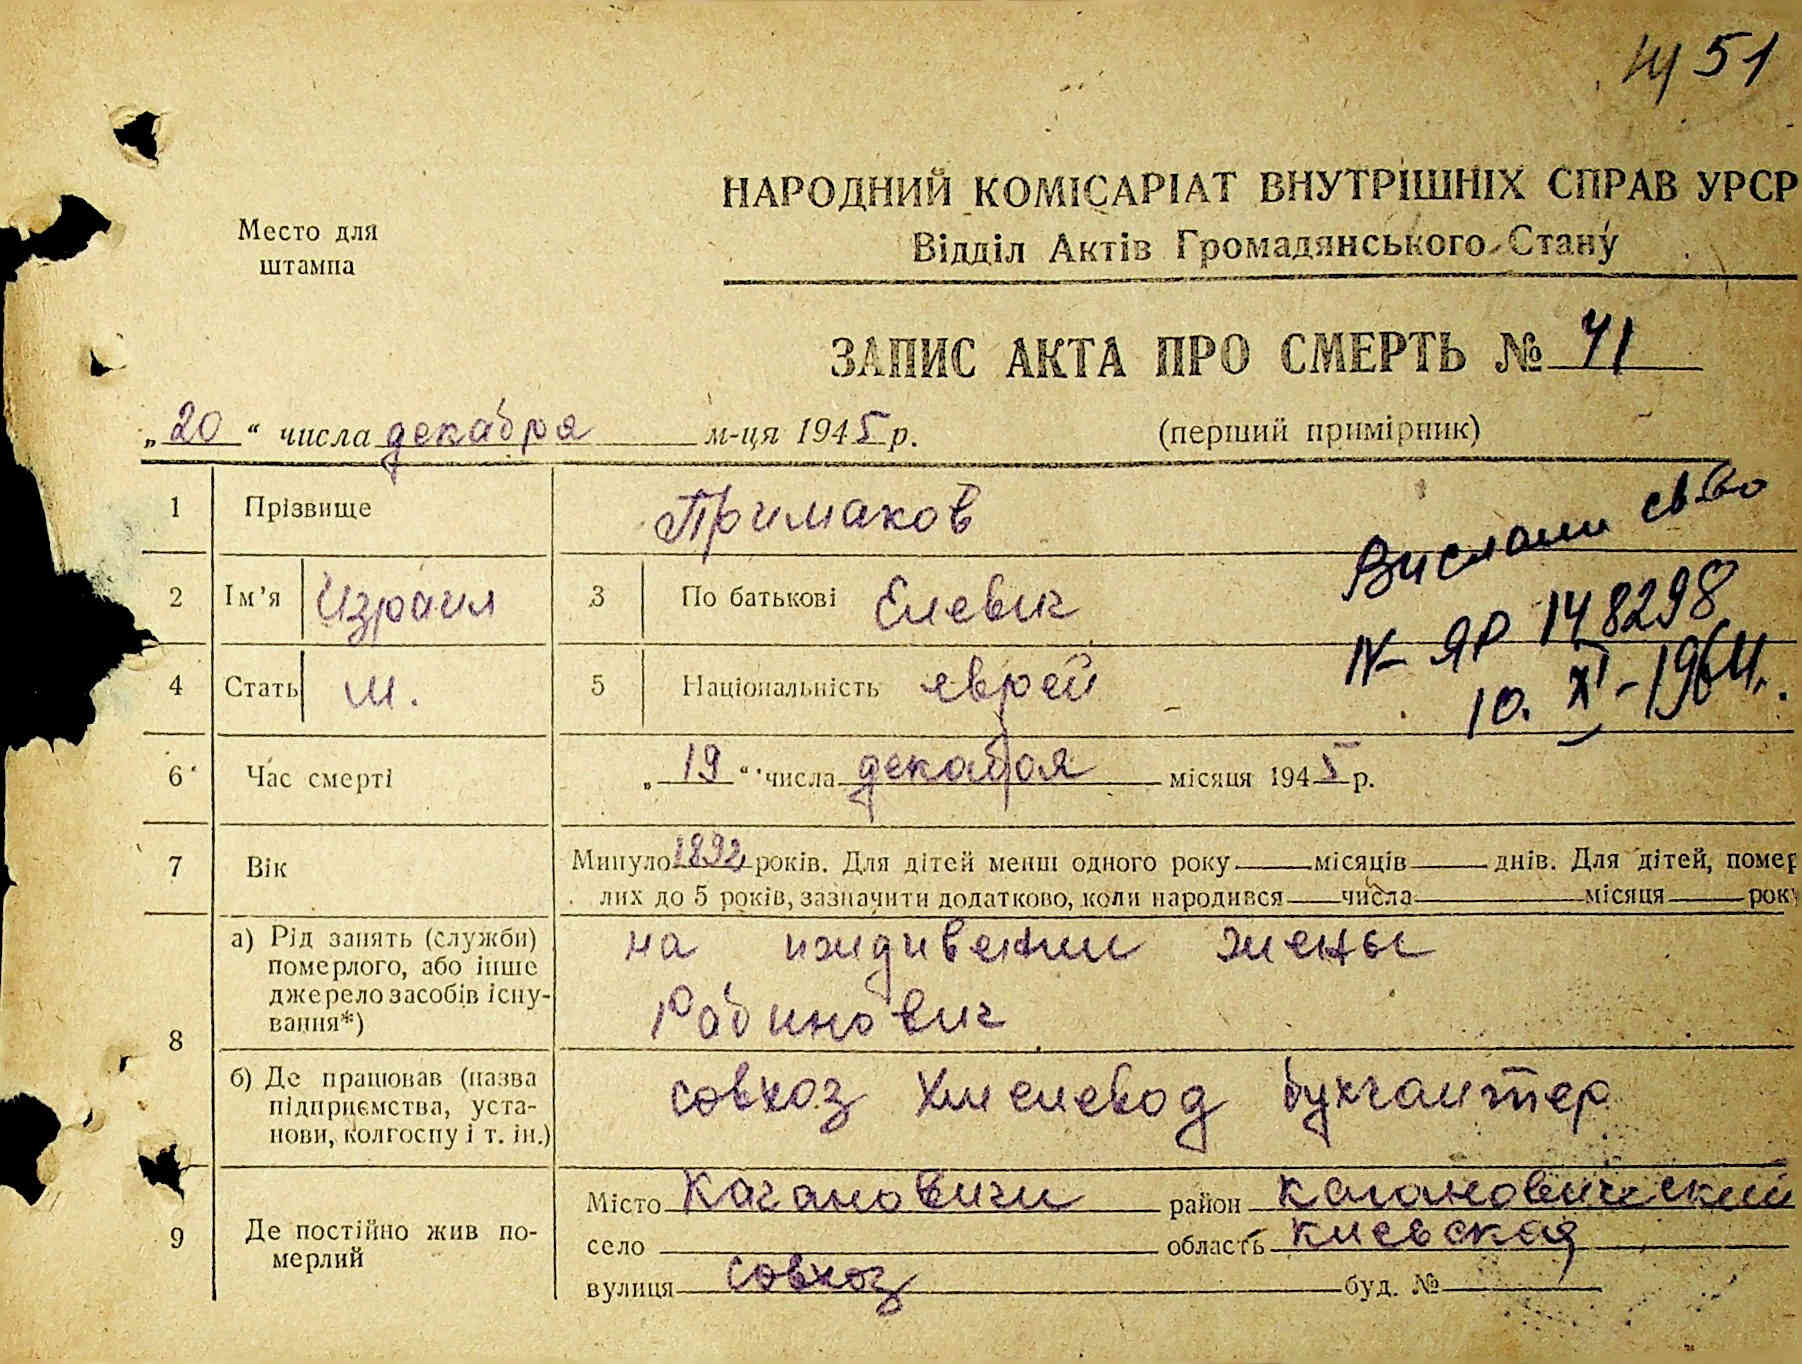 51
НАРОДНИЙ КОМІСАРІАТ ВНУТРІШНІХ СПРАВ УРСР
Відділ Актів Громадянського Стану
Место для
штампа
ЗАПИС АКТА ПРО СМЕРТЬ № 71
„20“ числа декабря м-ця 1945 р. (перший примірник)
1 Прізвище Примаков
Вислали св-во
2 Ім’я Израил 3 По батькові Елевич
№ ЯР 148298
4 Стать м. 5 Національність яврей
10. XI - 1964г.
6 Час смерті „19“ числа декабря місяця 1945 р.
7 Вік Минуло 1892 років. Для дітей менш одного року місяців днів. Для дітей, помер
лих до 5 років, зазначити додатково, коли народився числа місяця року
8 а) Рід занять (служби)
померлого, або інше
джерело засобів існу-
вання*)
на иждивении жены
Рабинович
б) Де працював (назва
підприємства, уста-
нови, колгоспу і т. ін.)
совхоз Хмелевод бухгалтер
9 Де постійно жив по-
мерлий
Місто Кагановичи район Кагановический
село область Киевская
вулиця совхоз буд. №